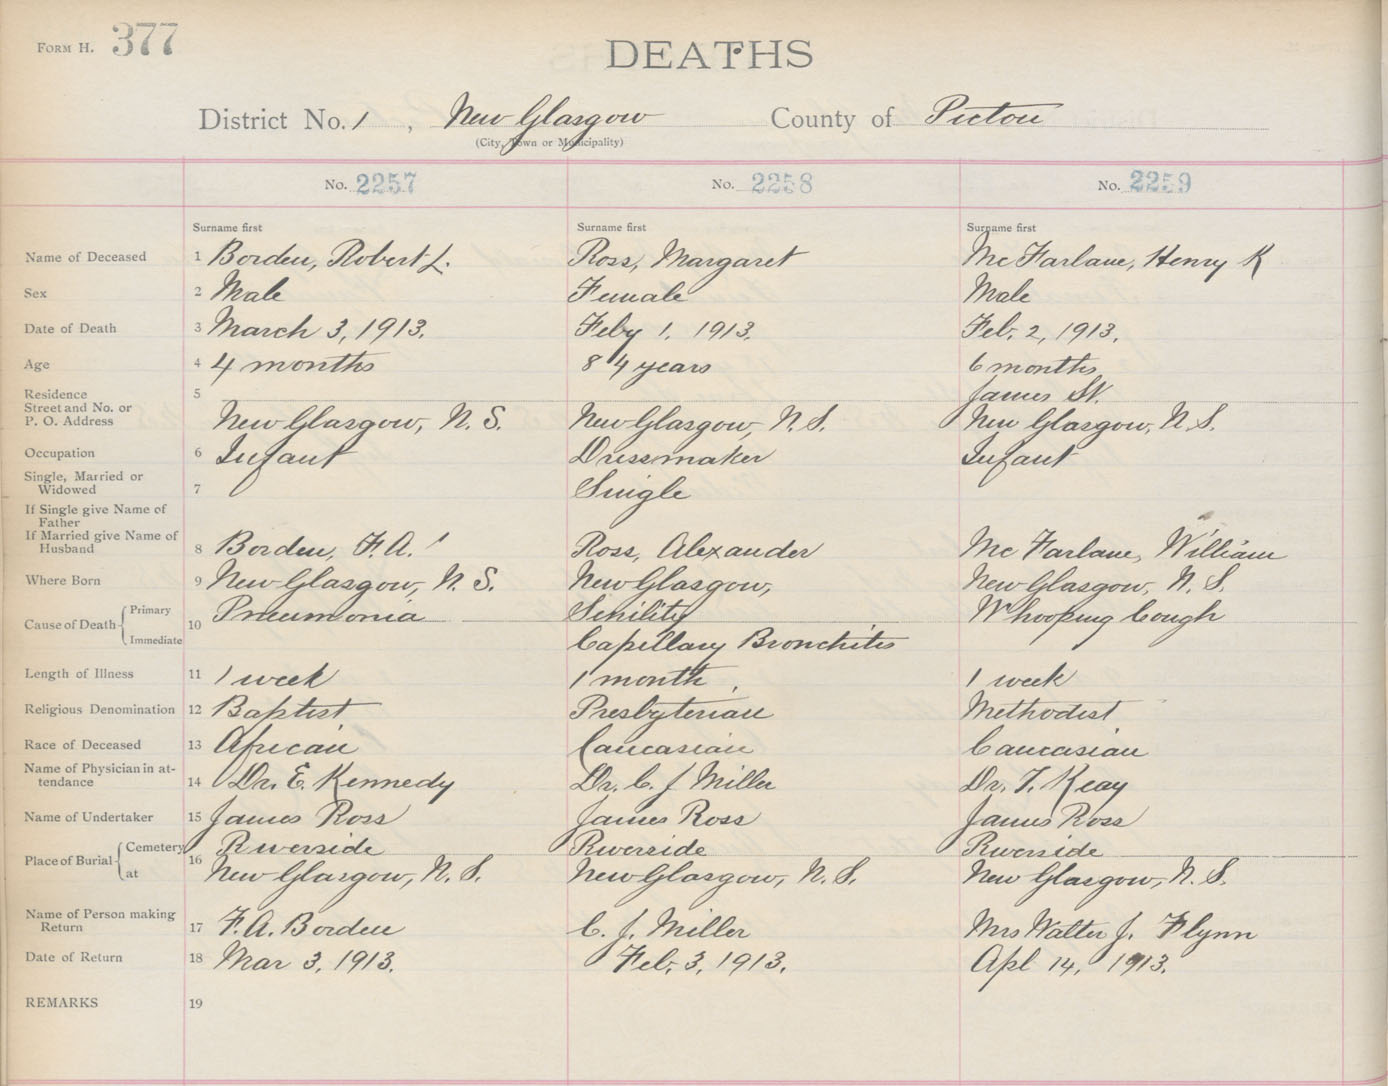 FORM H. 377
DEATHS
District No. 1, New Glasgow County of Pictou
(City, Town or Municipality)
No. 2257 No. 2258 No. 2259
Surname first Surname first Surname first
Name of Deceased 1 Borden, Robert L. Ross, Margaret McFarlane, Henry K
Sex 2 Male Female Male
Date of Death 3 March 3, 1913. Feby 1, 1913. Feb. 2, 1913.
Age 4 4 months 84 years 6 months
Residence 5 James St.
Street and No. or
P. O. Address New Glasgow, N. S. New Glasgow, N. S. New Glasgow, N. S.
Occupation 6 Infant Dressmaker Infant
Single, Married or
Widowed 7 Single
If Single give Name of
Father
If Married give Name of
Husband 8 Borden, F. A. Ross, Alexander McFarlane, William
Where Born 9 New Glasgow, N. S. New Glasgow, New Glasgow, N. S.
Cause of Death Primary 10 Pneumonia Senility Whooping Cough
Immediate Capillary Bronchites
Length of Illness 11 1 week 1 month 1 week
Religious Denomination 12 Baptist Presbyterian Methodist
Race of Deceased 13 African Caucasian Caucasian
Name of Physician in at-
tendance 14 Dr. E. Kennedy Dr. C. J Miller Dr. T. Keay
Name of Undertaker 15 James Ross James Ross James Ross
Place of Burial Cemetery 16 Riverside Riverside Riverside
at New Glasgow, N. S. New Glasgow, N. S. New Glasgow, N. S.
Name of Person making
Return 17 F. A. Borden C. J. Miller Mrs Walter J. Flynn
Date of Return 18 Mar 3, 1913. Feb. 3, 1913. Apl 14, 1913.
REMARKS 19